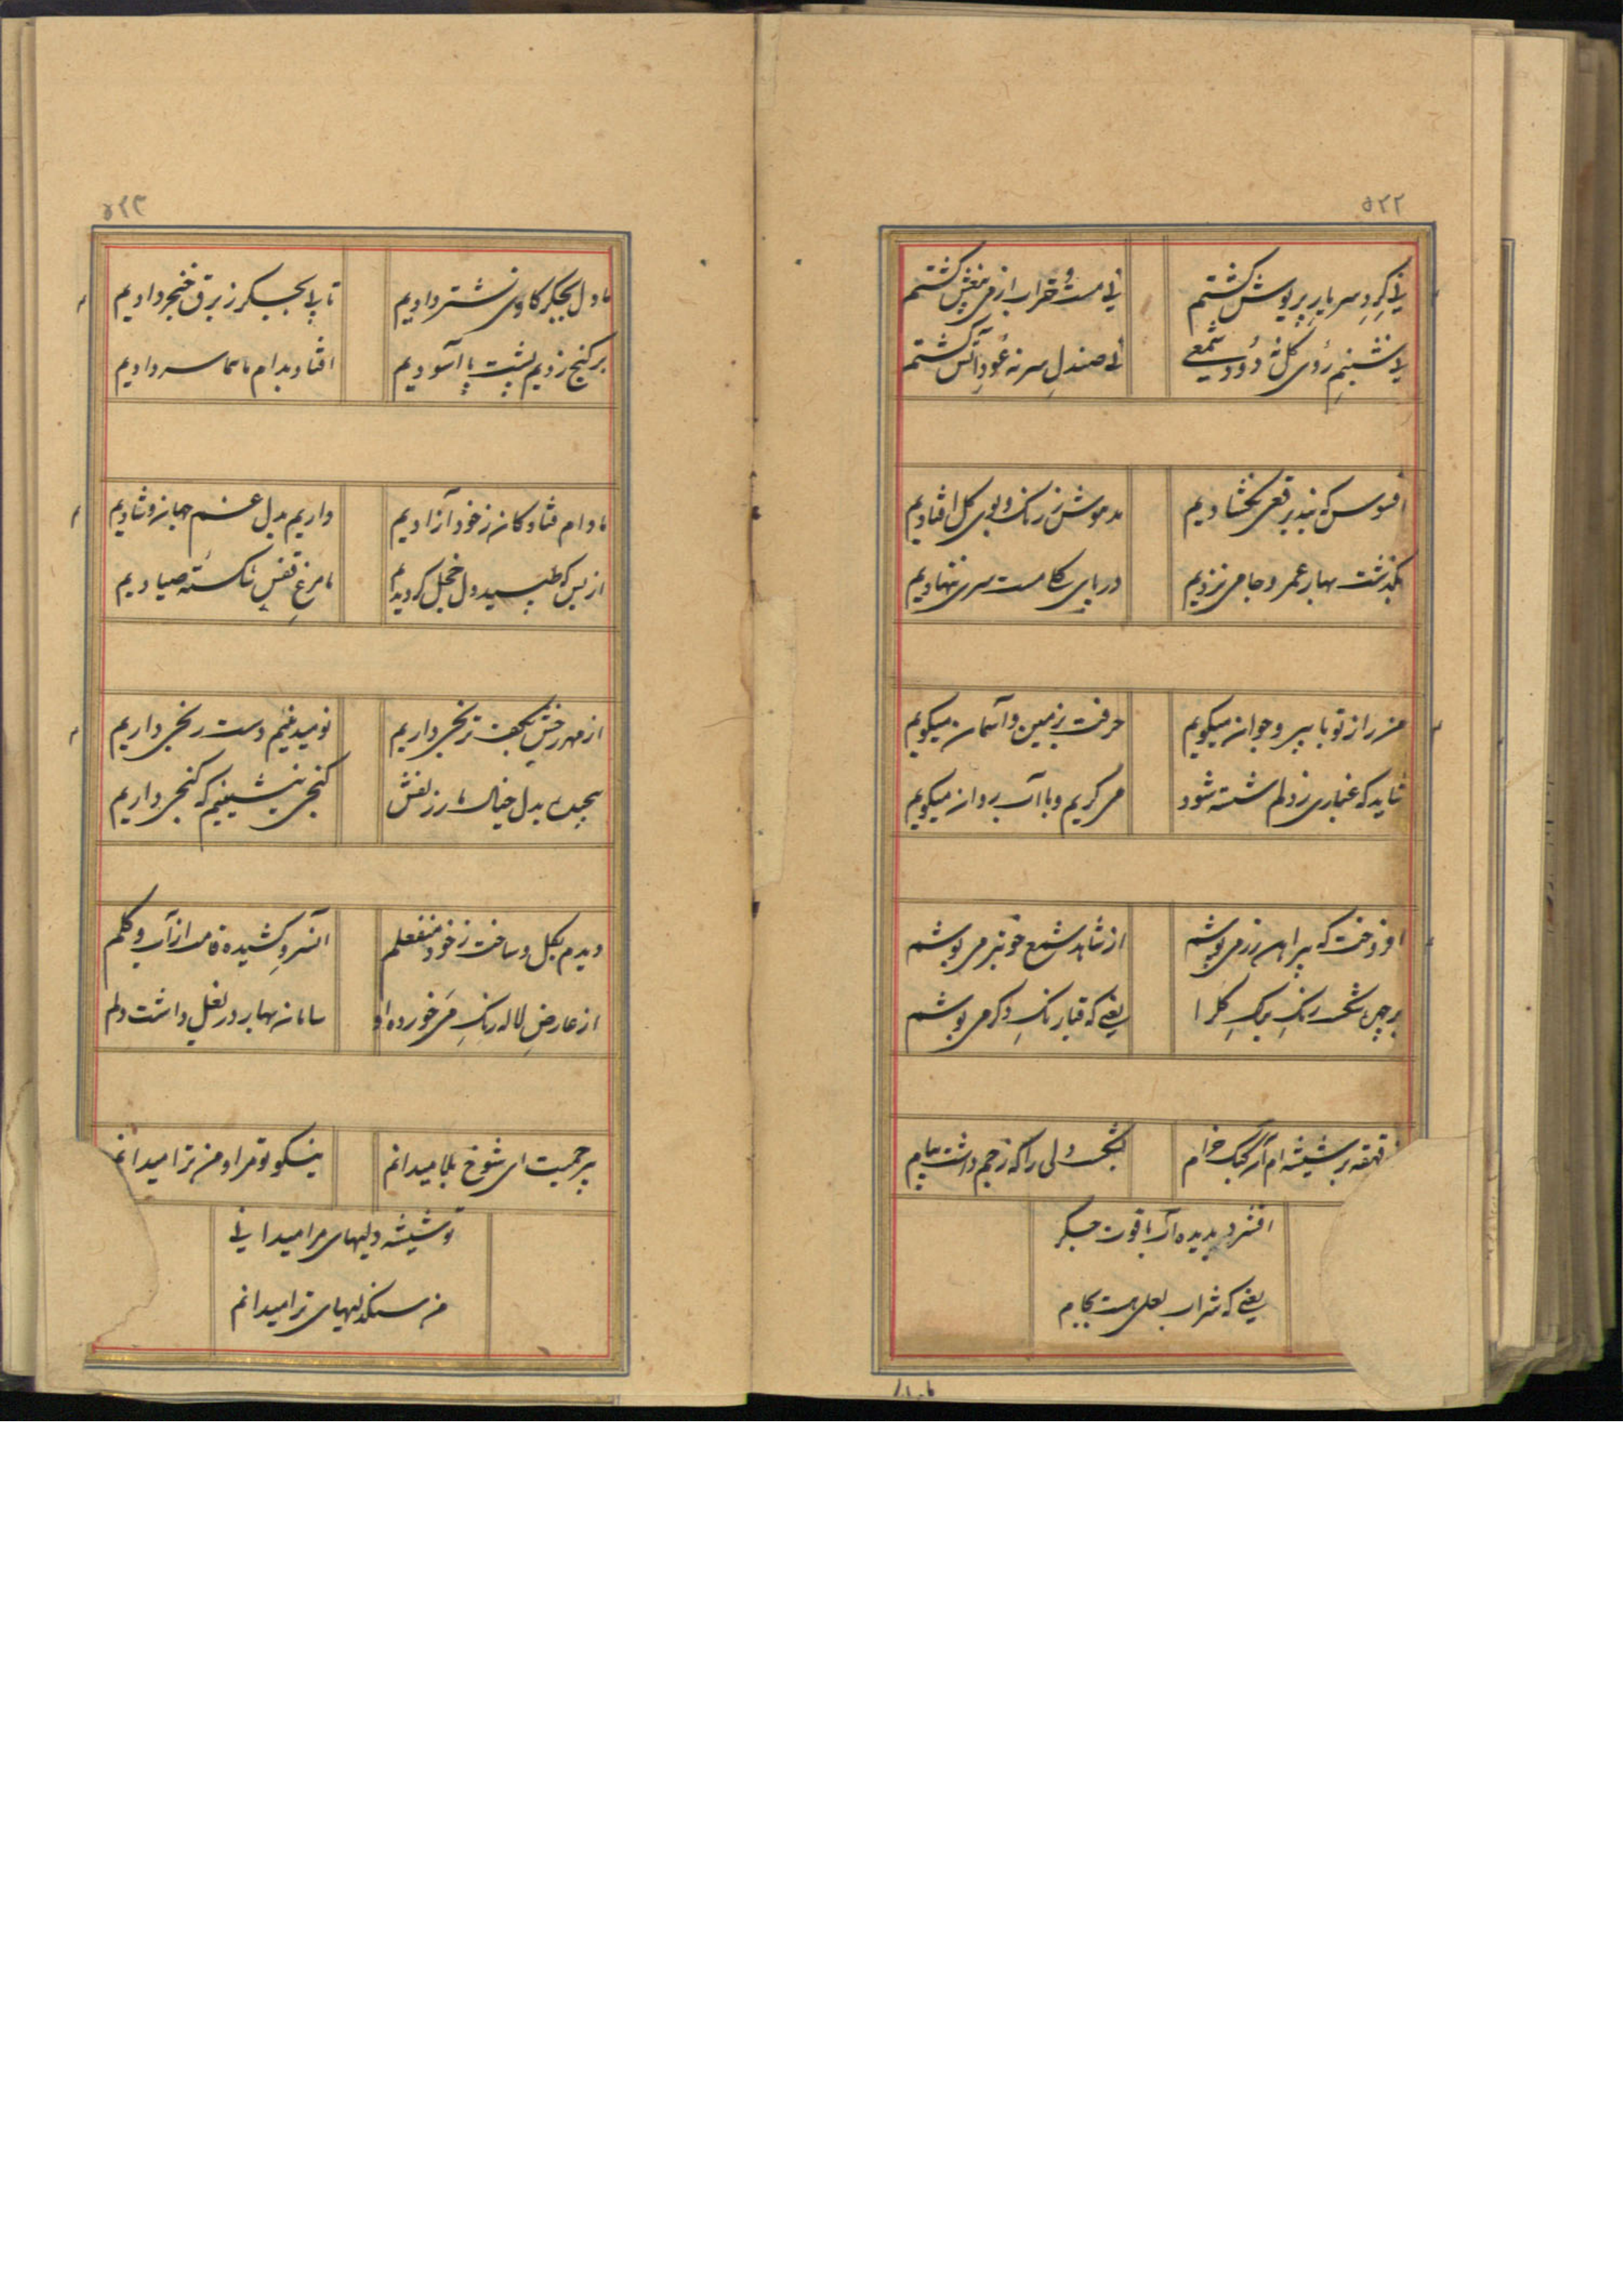 ۵۲۲
نی گرد سر یار پریوش گشتم
نی مست و خراب از می بیغش گشتم
نی شبنم روی گل نه دود شمعی
نی صندل سر نه عود آتش گشتم
افسوس که بند برقعی نگشادیم
مدهوش ز رنگ و بوی گل افتادیم
بگذشت بهار عمر و جامی نزدیم
در پای گل مست سری ننهادیم
من راز تو با پیر و جوان میگویم
حرفت بزمین و آسمان میگویم
شاید که غباری ز دلم شسته شود
می گریم و با آب روان میگویم
افروخت که پیراهن زر می پوشم
از شاهد شمع خوبتر می پوشم
بر چین شکست رنگ برگ گل را
یعنی که قبا رنگ دگر می پوشم
قهقه بر شیشه ام آن کبک خرام
بشکست دلی را که ز جم داشت پیام
افشرد بدیده آب یاقوت جگر
یعنی که شراب لعل هست بکام
۵۲۳
ما دل بجگر کاوی نشتر دادیم
تا پی بجگر ز برق خنجر دادیم
بر گنج زدیم پشت پا آسودیم
افتاد بدام ما هما سر دادیم
ما دام فتادگان ز خود آزادیم
داریم بدل غم جهان و شادیم
از بس که طپید دل خجل گردیدیم
ما مرغ قفس شکسته صیادیم
از مهر رخش بکف ترنجی داریم
نومید نئیم دست رنجی داریم
پیچیده بدل خیال مار زلفش
کنجی بنشینیم که گنجی داریم
دیدم بگل و ساخت ز خود منفعلم
آن سرو کشیده قامت از آب و گلم
از عارض لاله رنگ می خورده او
سامان بهار در بغل داشت دلم
بیرحمیت ای شوخ بلا میدانم
نیکو تو مرا و من ترا میدانم
تو شیشه دلیهای مرا میدانی
من سنگدلیهای ترا میدانم